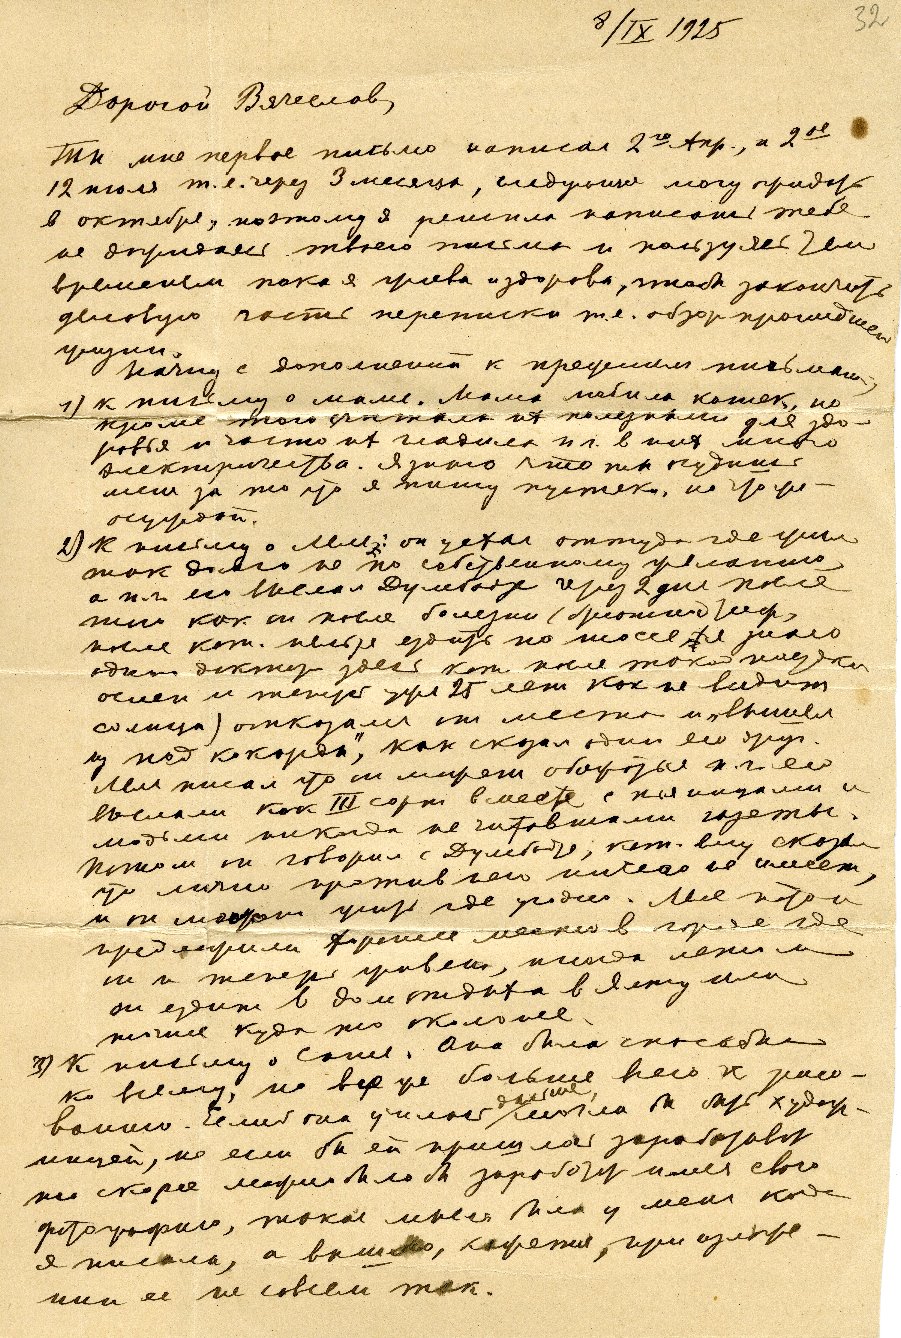 32
8/IX 1925
Дорогой Вячеслав,
Ты мне первое письмо написал 2го Апр., а 2ое
12 июля т.е. через 3 месяца, следующее могу ожидать
в октябре, поэтому я решила написать тебе
не дождавшись твоего письма и пользуясь тем
временем пока я жива и здорова, чтобы закончить
деловую часть переписки т.е. обзор прошедшей
жизни.
Начну с дополнений к прежним письмам,
1) К письму о маме. Мама любила кошек, но
кроме того считала их полезными для здо-
ровья и часто их гладила п.ч. в них много
электричества. Я знаю что ты осудишь
меня за то что я пишу пустяки, но что же —
осуждай.
2) К письму о Мле: он уехал оттуда где жил
так долго не по собственному желанию
а п.ч. его выслал Думбадзе через 2 дня после
того как он после болезни (брюшной тиф,
после кот. нельзя ездить по шоссе, я знаю
один доктор здесь кот. после такой поездки
ослеп и теперь уже 25 лет как не видит
солнца) отказался от места и „вышел
из под кокарды", как сказал один его друг.
Мля писал что он может обидеться п.ч. его
выслали как III сорт вместе с пьяницами и
людьми никогда не читавшими газеты.
Потом он говорил с Думбадзе, кот. ему сказал
что лично против него ничего не имеет,
и он может жить где угодно. Мле потом
предложили хорошее место в городе где
он и теперь живет, иногда летом
он ездит в дом отдыха в Ялту или
иначе куда то около нее.
3) К письму о Соне. Она была способна
ко всему, но все же больше всего к рисо-
ванию. Если б она училась дальше, могла бы быть худож-
ницей, но если бы ей пришлось зарабатывать
то скорее можно было бы заработать имея свою
фотографию, такая мысль была у меня когда
я писала, а вышло, кажется, при изложе —
нии ее не совсем так.